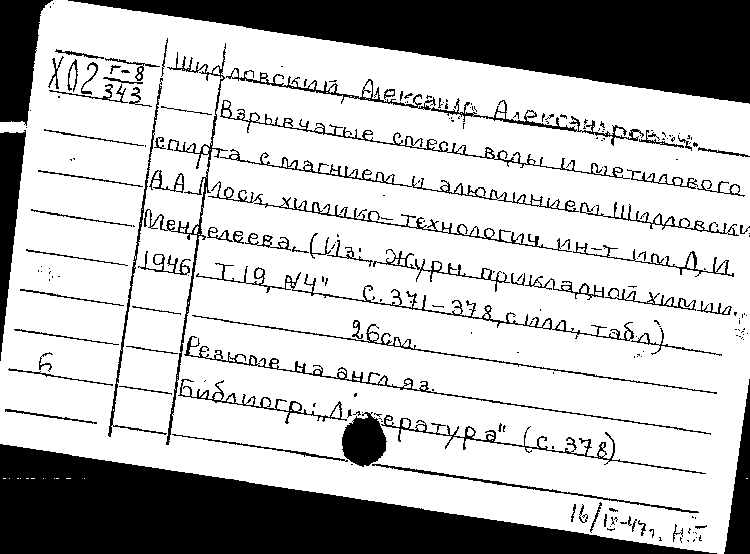 Х02 Г-8/343
Шидловский, Александр Александрович.
Взрывчатые смеси воды и метилового
спирта с магнием и алюминием. Шидловски
А.А. Моск. химико-технологич. ин-т им. Д.И.
Менделеева. (Из: „Журн. прикладной химии.
1946. Т.19, №4". С. 371-378, с илл., табл.)
26см.
Резюме на англ. яз.
Б
Библиогр.: „Литература" (с. 378)
16/IX-47г.